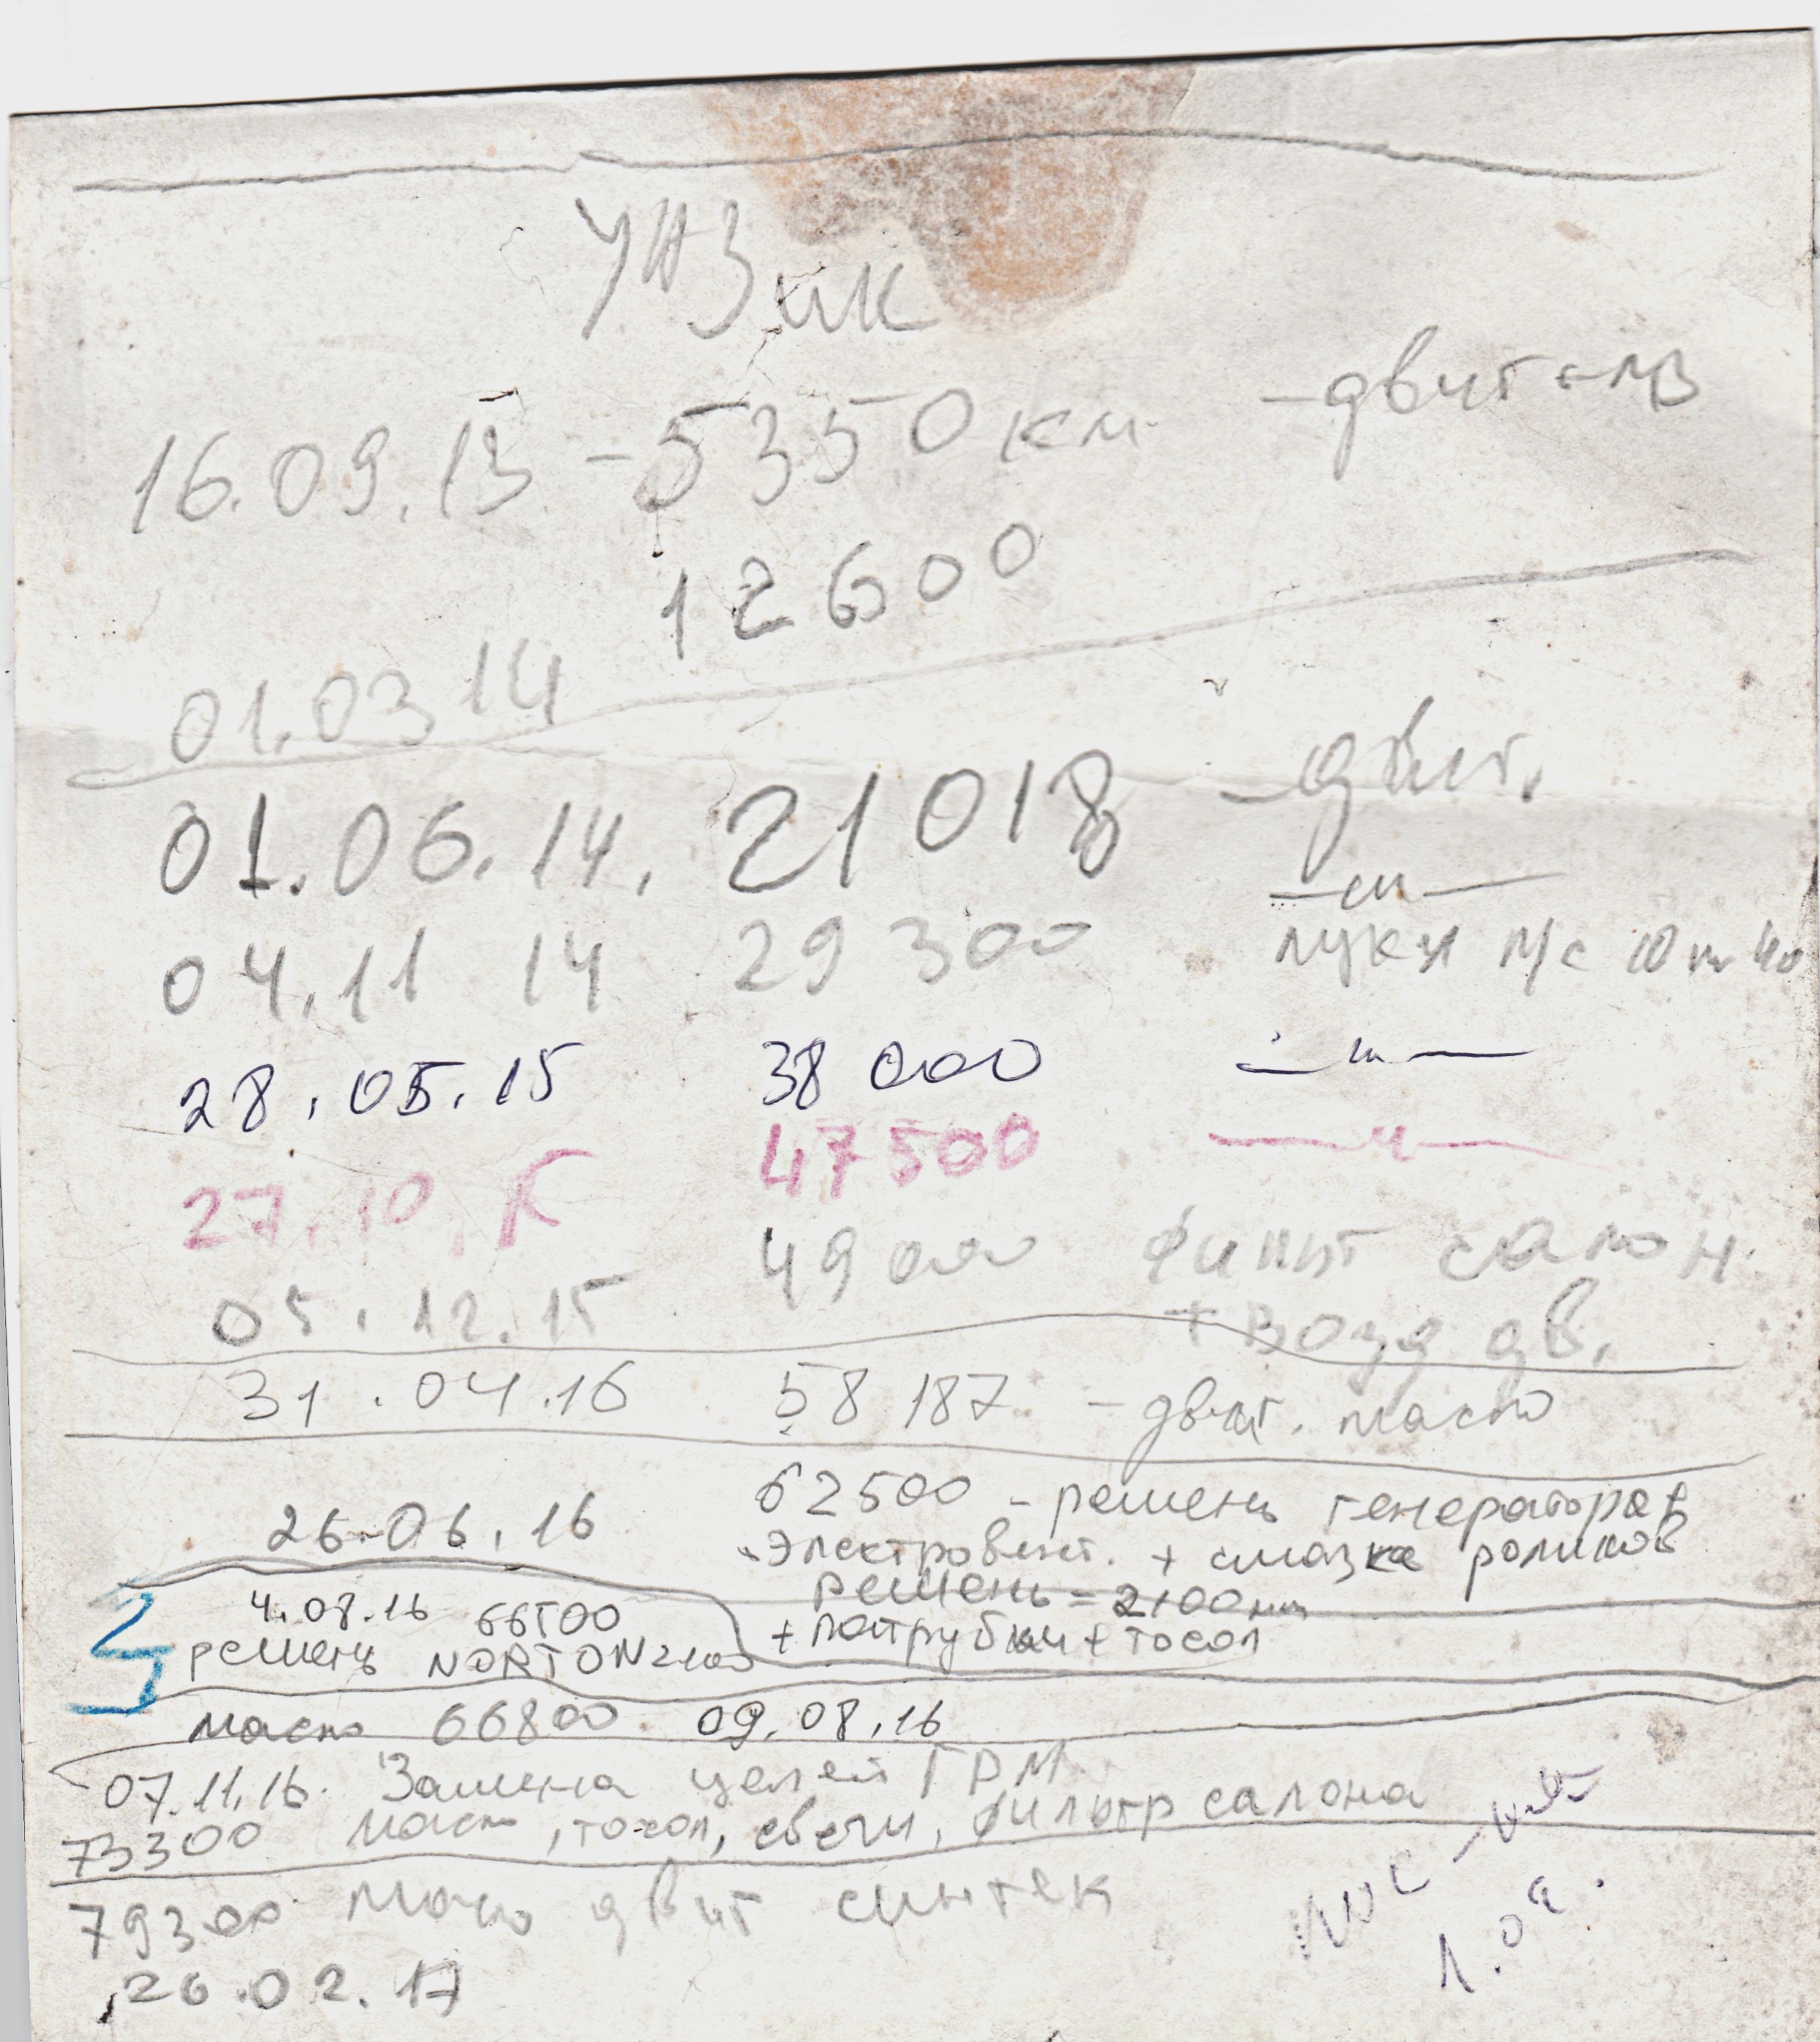 УАЗик
16.09.13 - 5350 км - двиг
12600
01.03 14
01.06.14. 21018 - двиг.
04.11 14 29 300 — " —
м/с 10 40
28.05.15 38 000 — " —
27.10.15 47500 — " —
05.12.15 49 000 фильт салон
+ возд дв.
31.04.16 58 187 - двиг. масло
26.06.16 62500 - ремень генератора +
электровент. + смазка роликов
ремень = 2100 мм
+ патрубки + тосол
4.08.16 66500
ремень NORTON 2100
масло 66800 09.08.16
07.11.16. Замена цепей ГРМ
73300 масло, тосол, свечи, фильтр салона
79300 масло двиг синтек
26.02.17